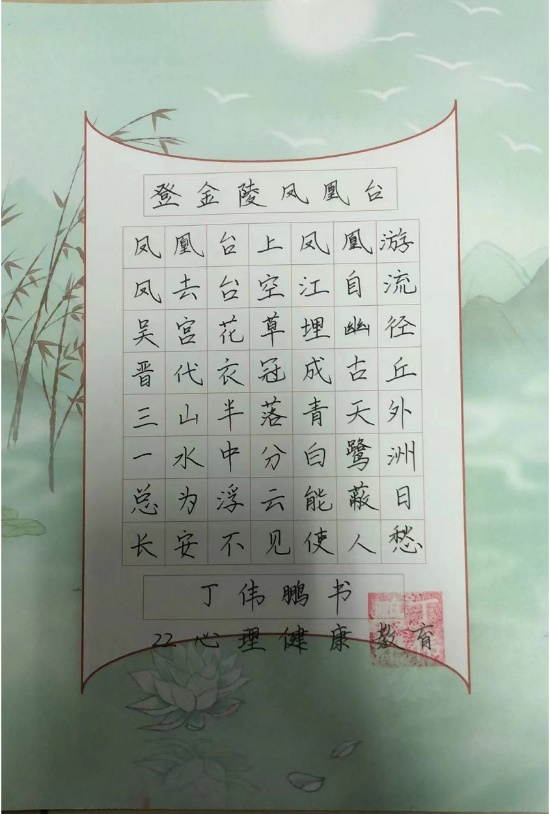 登金陵凤凰台
凤凰台上凤凰游
凤去台空江自流
吴宫花草埋幽径
晋代衣冠成古丘
三山半落青天外
一水中分白鹭洲
总为浮云能蔽日
长安不见使人愁
丁伟鹏书
22心理健康教育